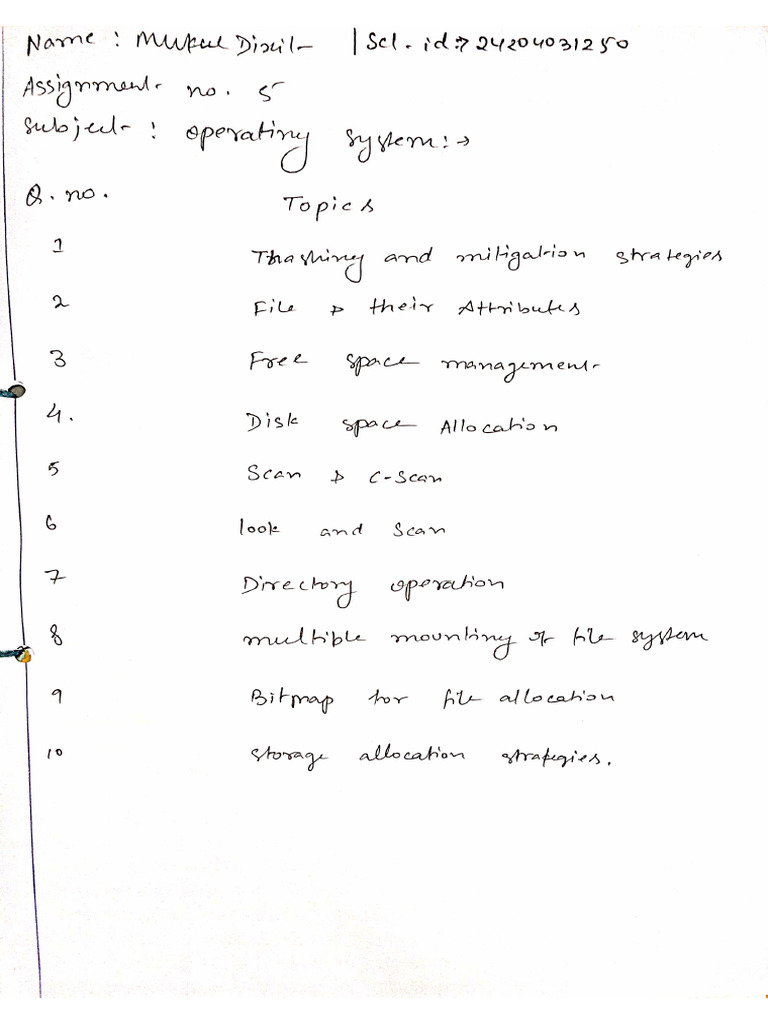 Name : Mukul Dixit | Scl. id :→ 24204031250
Assignment no. 5
Subject : operating system :→
Q. no. Topics
1 Thashing and mitigation strategies
2 File & their Attributes
3 Free space management
4. Disk space Allocation
5 Scan & C-Scan
6 look and Scan
7 Directory operation
8 multible mounting of file system
9 Bitmap for file allocation
10 storage allocation strategies.